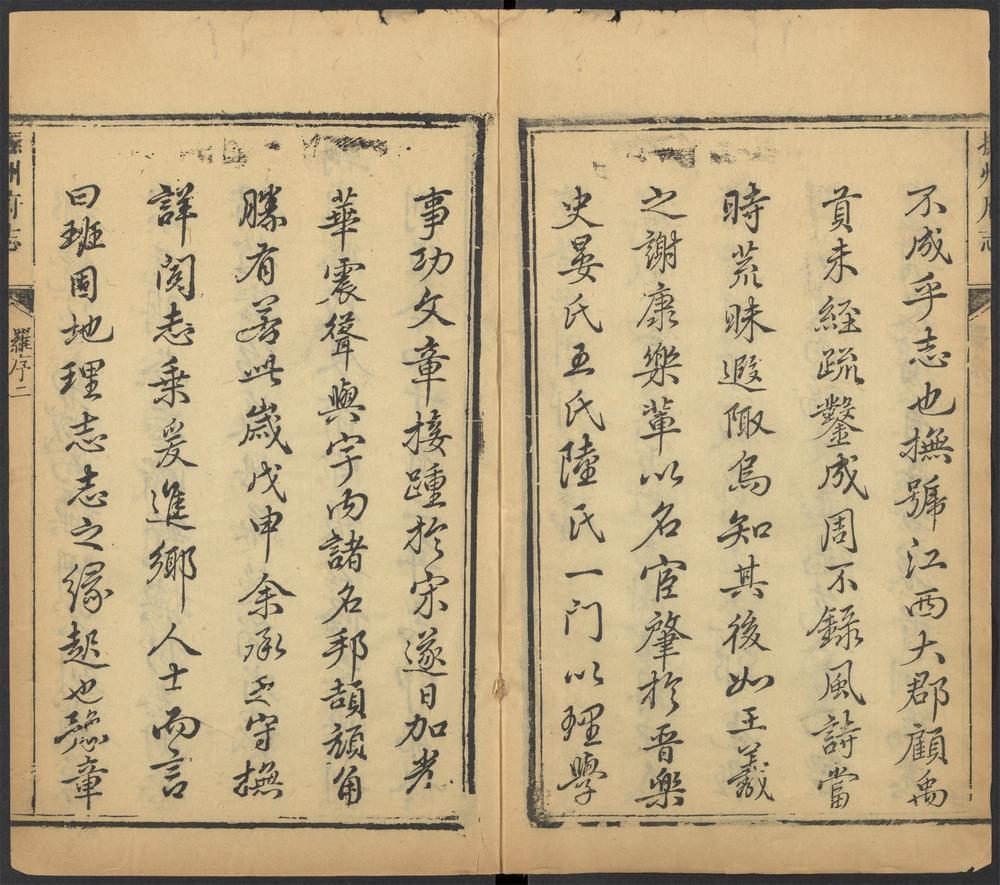 不成乎志也撫號江西大郡顧禹
貢未經疏鑿成周不錄風詩當
時荒昧遐陬烏知其後如王羲
之謝康樂輩以名宦肇於晉樂
史晏氏王氏陸氏一門以理學
事功文章接踵於宋遂日加光
華震聳與宇內諸名邦頡頏角
勝有若此歲戊申余承乏守撫
詳閱志乘爰進鄉人士而言
曰班固地理志志之緣起也豫章
撫州府志
羅序二